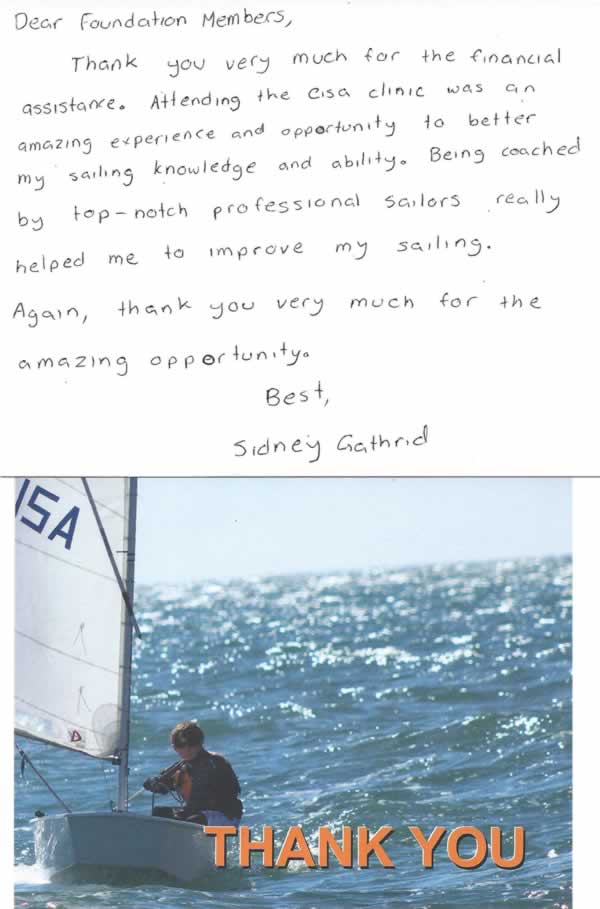 Dear Foundation Members,
Thank you very much for the financial
assistance. Attending the CISA clinic was an
amazing experience and opportunity to better
my sailing knowledge and ability. Being coached
by top-notch professional sailors really
helped me to improve my sailing.
Again, thank you very much for the
amazing opportunity.
Best,
Sidney Gathrid
USA
THANK YOU